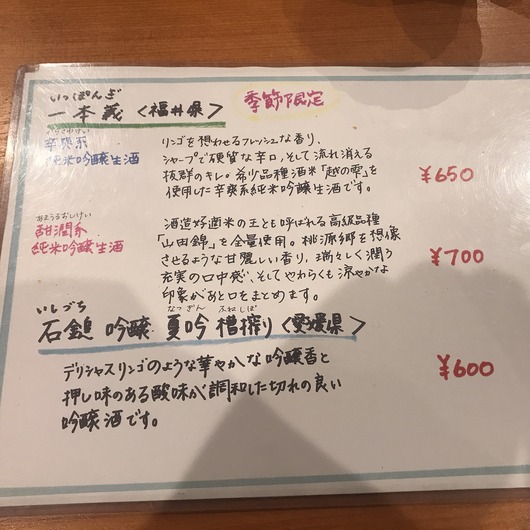 いっぽんぎ
一本義 <福井県> 季節限定
からさわけい
辛爽系
純米吟醸生酒
リンゴを想わせるフレッシュな香り、
シャープで硬質な辛口、そして流れ消える
抜群のキレ。希少品種酒米「越の雫」を
使用した辛爽系純米吟醸生酒です。
¥650
あまうるおしけい
甜潤系
純米吟醸生酒
酒造好適米の王とも呼ばれる高級品種
「山田錦」を全量使用。桃源郷を想像
させるような甘麗しい香り、瑞々しく潤う
充実の口中感、そしてやわらくも涼やかな
印象があと口をまとめます。
¥700
いしづち なつぎん ふねしぼ
石鎚 吟醸 夏吟 槽搾り <愛媛県>
デリシャスリンゴのような華やかな吟醸香と
押し味のある酸味が調和した切れの良い
吟醸酒です。
¥600